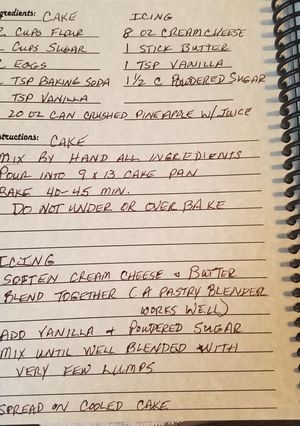 gredients: CAKE ICING
CUPS FLOUR 8 OZ CREAM CHEESE
CUPS SUGAR 1 STICK BUTTER
EGGS 1 TSP VANILLA
TSP BAKING SODA 1 1/2 C POWDERED SUGAR
TSP VANILLA
20 OZ CAN CRUSHED PINEAPPLE W/ JUICE
structions: CAKE
MIX BY HAND ALL INGREDIENTS
POUR INTO 9 X 13 CAKE PAN
BAKE 40-45 MIN.
DO NOT UNDER OR OVER BAKE
ICING
SOFTEN CREAM CHEESE & BUTTER
BLEND TOGETHER (A PASTRY BLENDER
WORKS WELL)
ADD VANILLA & POWDERED SUGAR
MIX UNTIL WELL BLENDED WITH
VERY FEW LUMPS
SPREAD ON COOLED CAKE